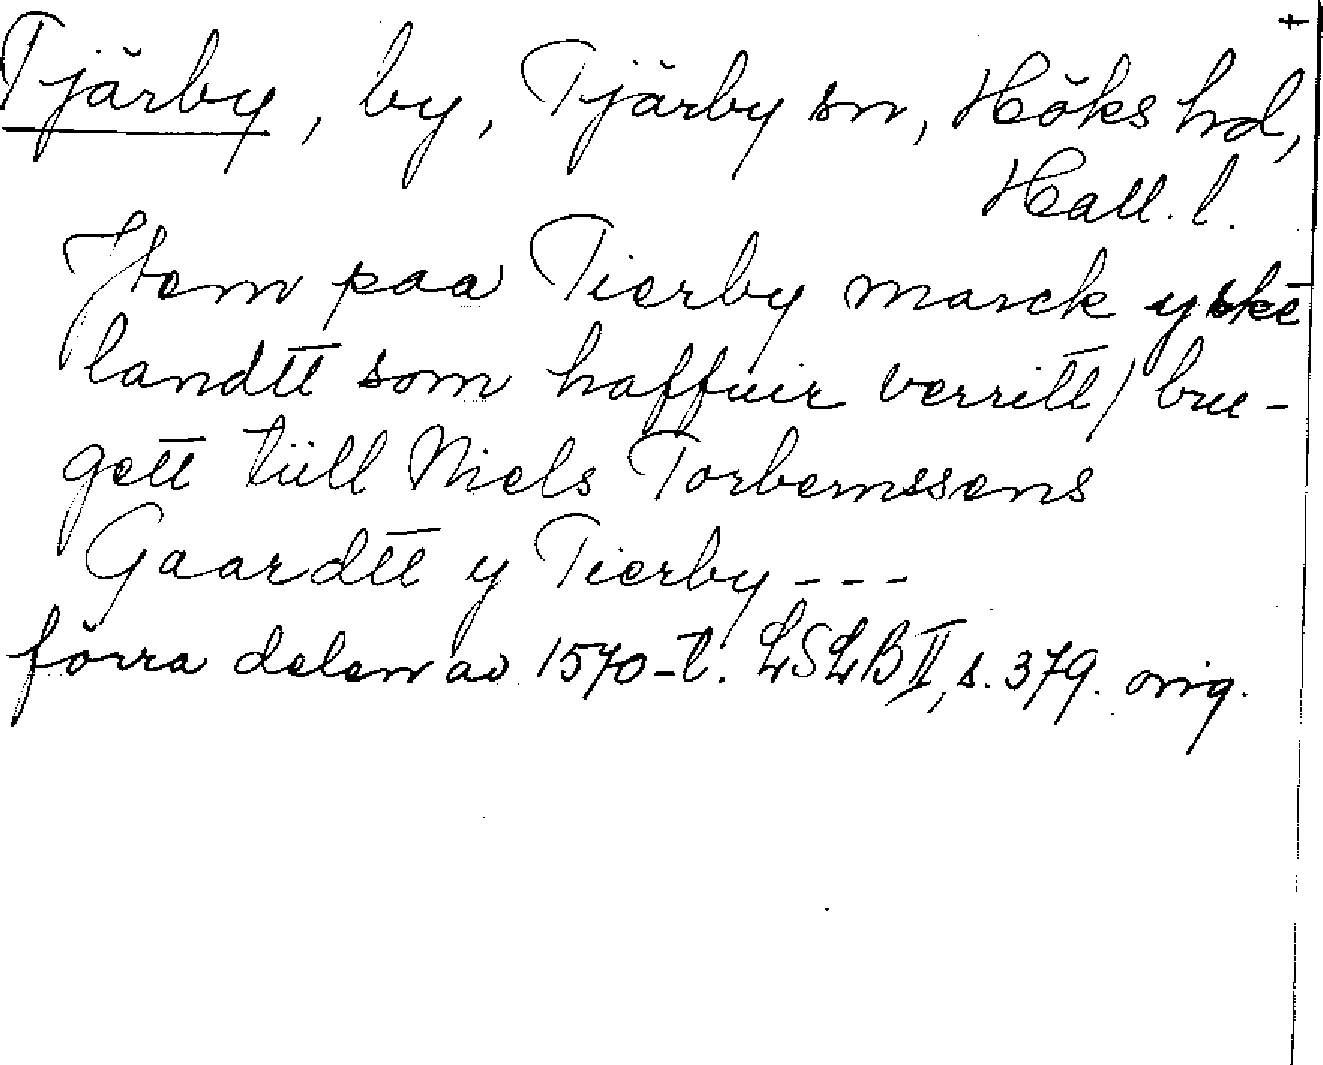 †
Tjärby, by, Tjärby sn, Höks hd,
Hall. l.
Jtem paa Tierby marck y ske
landtt som haffuir verritt / bru-
gett tiill Niels Torbernssens
Gaardtt y Tierby - - -
förra delen av 1570-t. LSLB II, s. 379. orig.